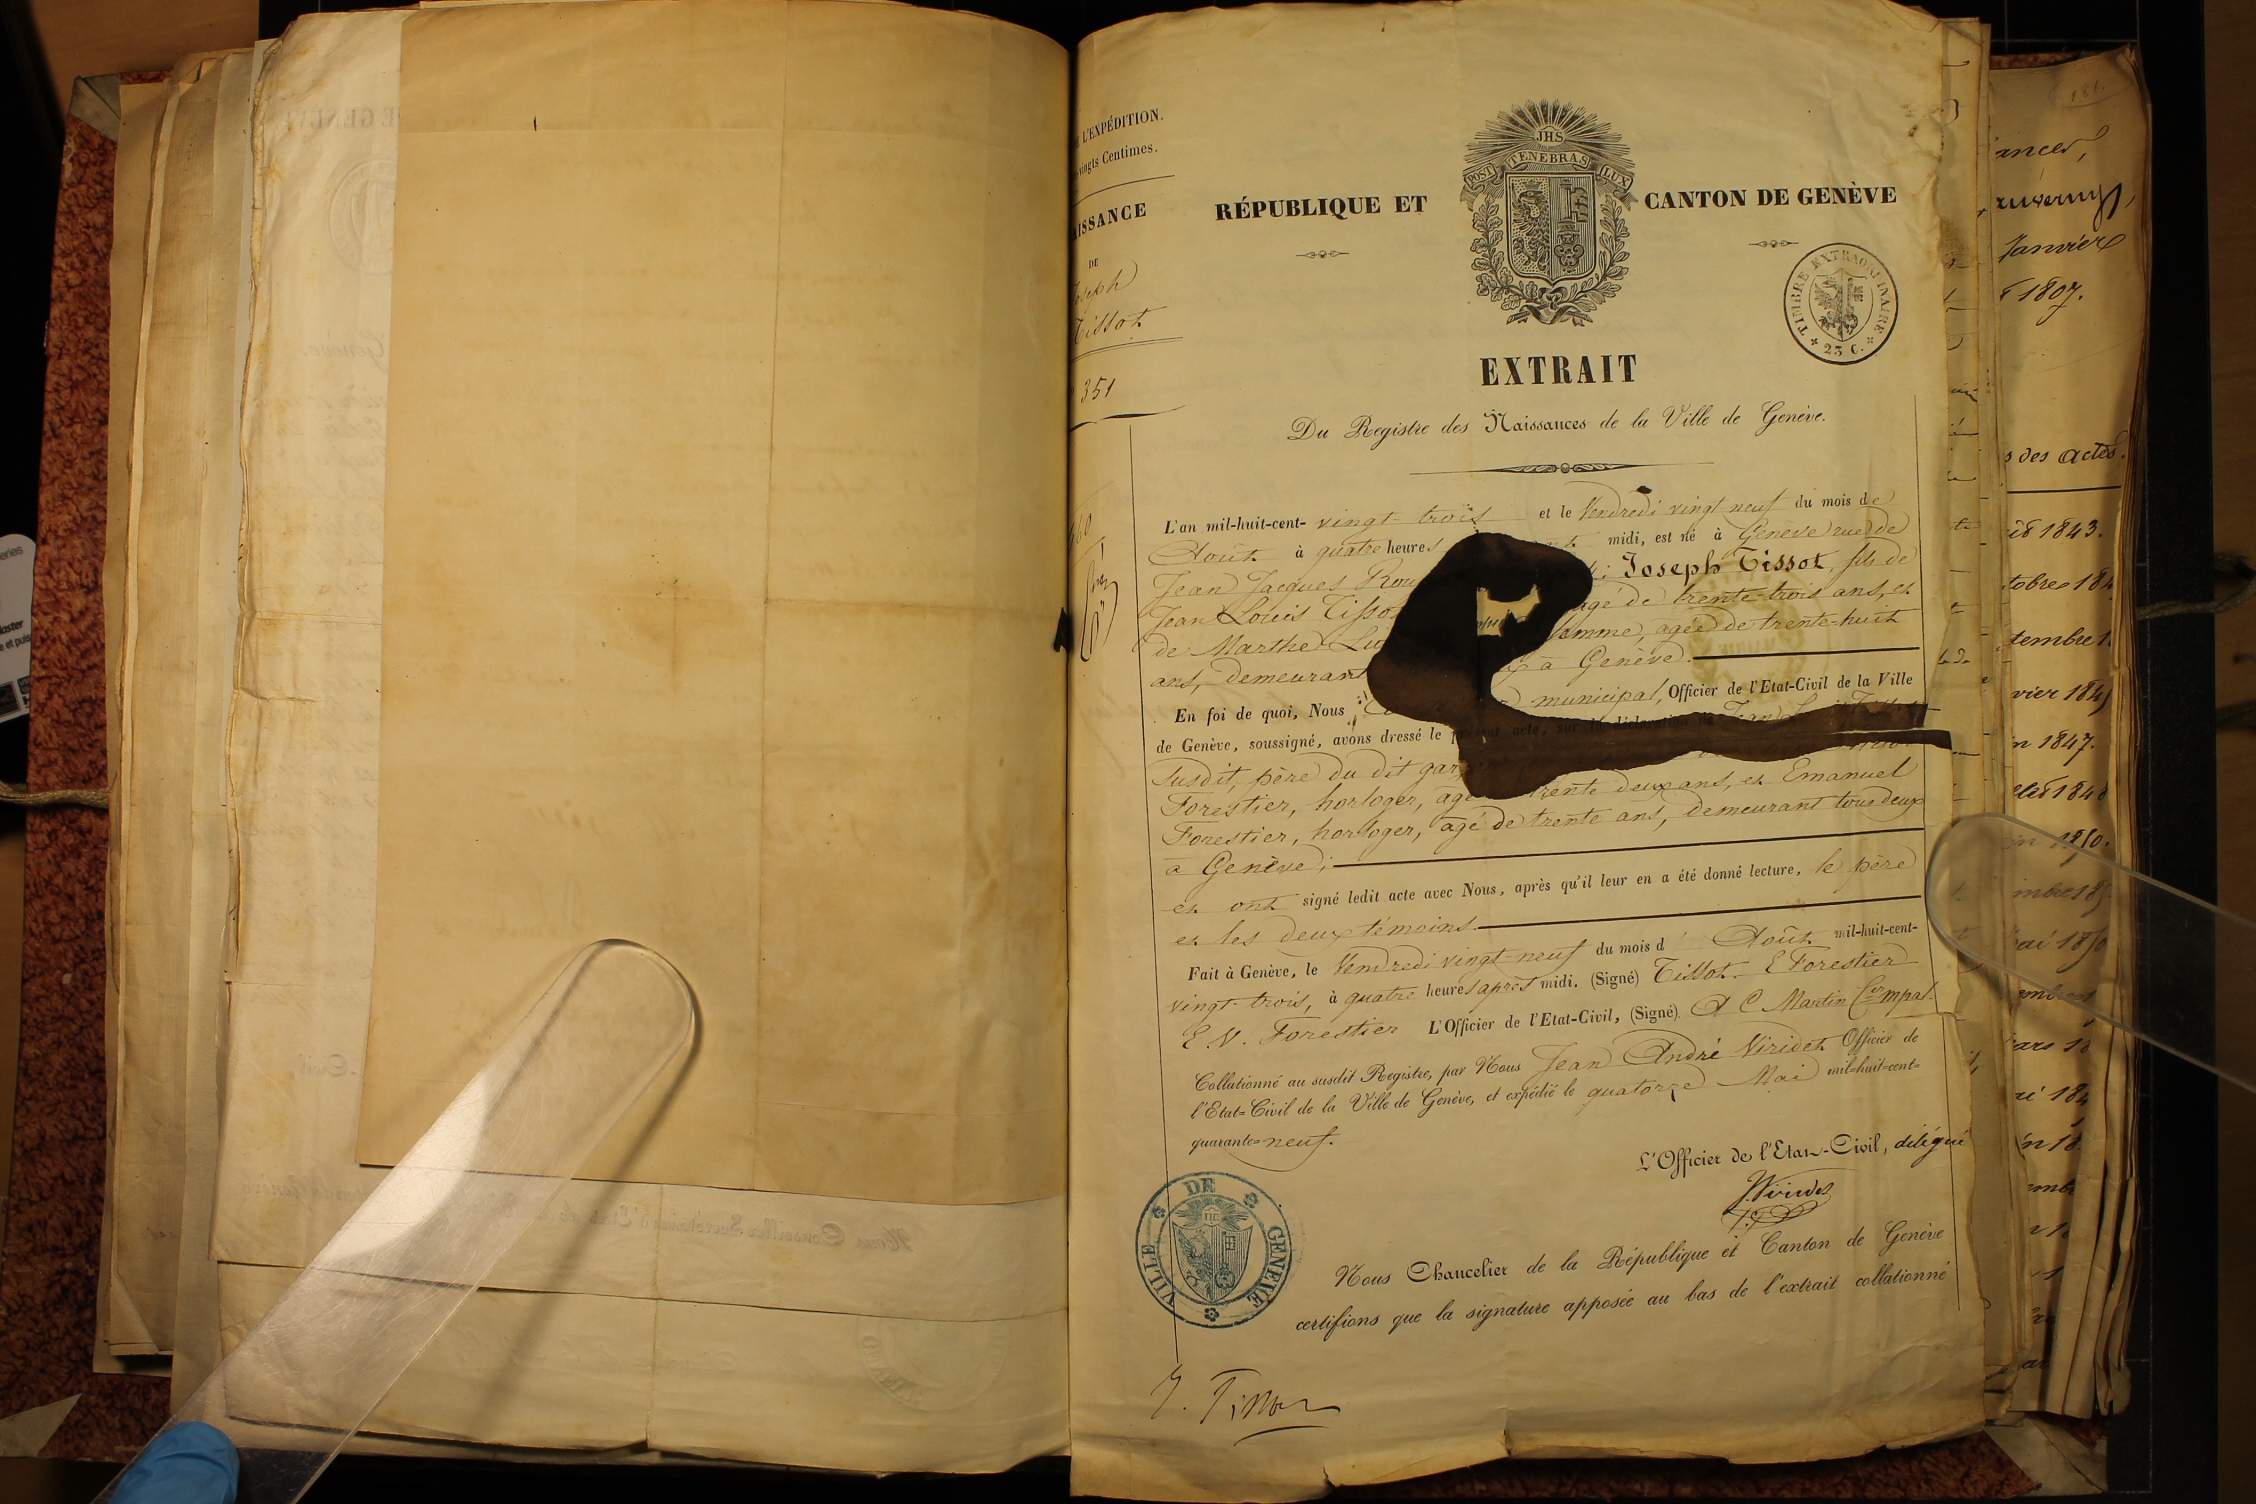 L'EXPÉDITION.
vingts Centimes.
AISSANCE
DE
Joseph
Tissot
351
JHS
POST TENEBRAS LUX
RÉPUBLIQUE ET CANTON DE GENÈVE
TIMBRE EXTRAORDINAIRE
25 C.
EXTRAIT
Du Registre des Naissances de la Ville de Genève.
L'an mil-huit-cent- vingt-trois et le Vendredi vingt neuf du mois de
Août à quatre heures midi, est né à Genève rue de
Jean Jacques Rou Joseph Tissot, fils de
Jean Louis Tissot agé de trente-trois ans, et
de Marthe femme, agée de trente-huit
ans, demeurant à Genève.
En foi de quoi, Nous municipal, Officier de l'Etat-Civil de la Ville
de Genève, soussigné, avons dressé le présent acte, sur la déclaration de Jean Louis Tissot
susdit, père du dit gar
Forestier, horloger, agé trente deux ans, et Emanuel
Forestier, horloger, agé de trente ans, demeurant tous deux
à Genève;
et ont signé ledit acte avec Nous, après qu'il leur en a été donné lecture, le père
et les deux témoins.
Fait à Genève, le Vendredi vingt-neuf du mois d' Août mil-huit-cent-
vingt-trois, à quatre heures après midi. (Signé) Tissot. E Forestier
E. V. Forestier L'Officier de l'Etat-Civil, (Signé). A C Martin Cer mpal.
Collationné au susdit Registre, par Nous Jean André Viridet Officier de
l'Etat-Civil de la Ville de Genève, et expédié le quatorze Mai mil-huit-cent-
quarante-neuf.
L'Officier de l'Etat-Civil, délégué
JViridet
VILLE DE GENEVE
Nous Chancelier de la République et Canton de Genève
certifions que la signature apposée au bas de l'extrait collationné
J. Tissot
181
ances,
Janvier
1807.
s des actes.
1843.
tobre 184
tembre 1
vier 184
n 1847.
llet 184
1850.
mbre 18
ai 18